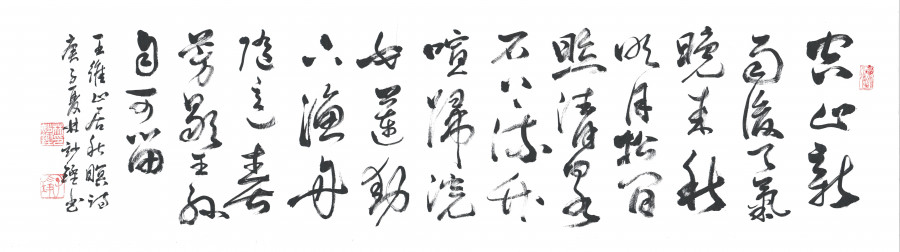 空山新
雨後天氣
晚来秋
明月松间
照清泉
石上流竹
喧歸浣
女蓮動
下漁舟
随意春
芳歇王孫
自可留
王維山居秋暝詩
庚子夏林书